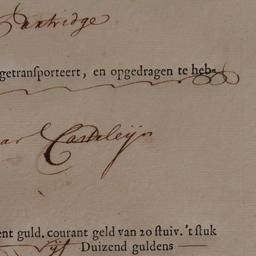 Santridge
getransporteert, en opgedragen te heb-
ar Casteleijn
ent guld. courant geld van 20 stuiv. 't stuk
Vijf Duizend guldens